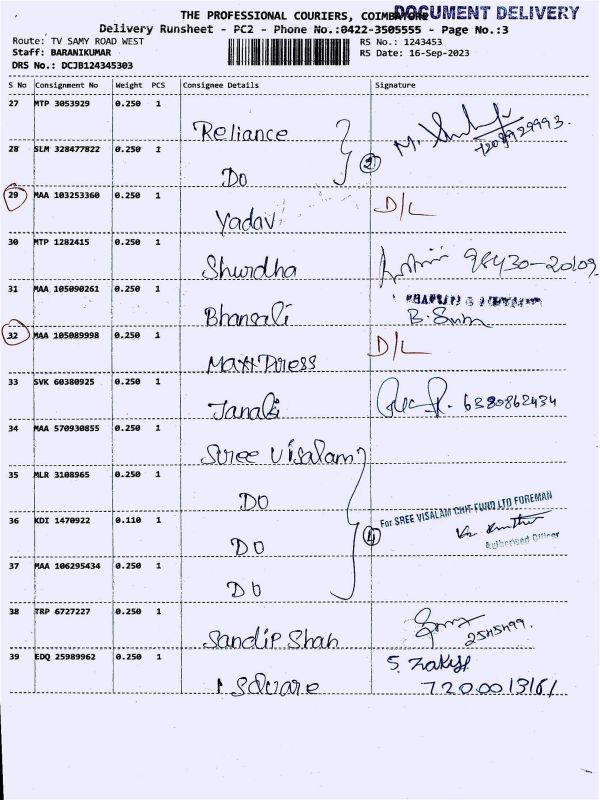 THE PROFESSIONAL COURIERS, COIMBATORE
DOCUMENT DELIVERY
Delivery Runsheet - PC2 - Phone No.:0422-3505555 - Page No.:3
Route: TV SAMY ROAD WEST
RS No.: 1243453
Staff: BARANIKUMAR
RS Date: 16-Sep-2023
DRS No.: DCJB124345303
S No Consignment No Weight PCS Consignee Details Signature
27 MTP 3053929 0.250 1
Reliance
28 SLM 328477822 0.250 1
2
Do
29 MAA 103253360 0.250 1
Yadav D/L
30 MTP 1282415 0.250 1
Shurdha 98430-20109
31 MAA 105090261 0.250 1
Bhansali B.
32 MAA 105089998 0.250 1
D/L
33 SVK 60380925 0.250 1
Janaki 6380862434
34 MAA 570930855 0.250 1
Sree Visalam
35 MLR 3108965 0.250 1
DO
For SREE VISALAM CHIT FUND LTD FOREMAN
36 KDI 1470922 0.110 1
4
DO
Authorised Officer
37 MAA 106295434 0.250 1
DO
38 TRP 6727227 0.250 1
Sandip Shah
39 EDQ 25989962 0.250 1
S.
I Square 7200013161